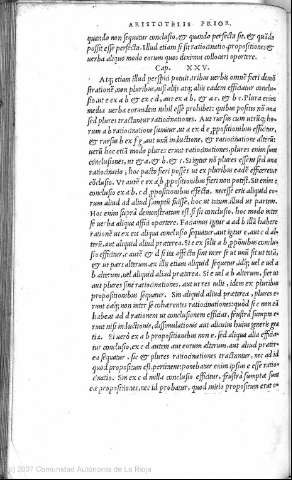 ARISTOTELIS PRIOR.
quando non sequatur conclusio, & quando perfecta sit, & quādo
possit esse perfecta. Illud etiam si sit ratiocinatio, propositiones &
verba aliquo modo eorum quos diximus collocari oportere.
Cap. XXV.
Atq; etiam illud perspici potuit, tribus verbis omnē fieri demō
strationē, non pluribus, nisi alijs atq; alijs eadem efficiatur conclu-
sio, ut e ex a b & ex c d, aut ex a b, & a c, & b c. Plura enim
media verba eorundem nihil esse prohibet: quibus positis nō una
sed plures erunt ratiocinationes. Aut rursus cum utrūq; ho-
rum a b ratiocinatione sumitur, ut a ex d e propositionibus efficitur,
& rursus b ex f g, aut unū inductione, & ratiocinatione alterū:
uerū hoc etiā modo plures erunt ratiocinationes. plures enim sunt
conclusiones, ut a, & b, & c. Si igitur nō plures essent sed una
ratiocinatio, hoc pacto fieri posset ut ex pluribus eadē efficeretur
cōclusio. Ut autē e ex a b propositionibus fieri non potest. Sit enim e
conclusio, ex a b c d propositionibus effecta. necesse erit aliquid eo-
rum aliud ad aliud sumptū fuisse, hoc ut totum, illud ut partem.
Hoc enim suprà demonstratum est, si sit conclusio, hoc modo inter
se verba aliqua affici oportere.
rationē ut ex eis aliqua conclusio sequatur, aut igitur e, aut c ad al-
terū, aut aliud aliquid præterea. Et ex solis a b propositionibus conclu-
sio efficitur. c autē & d si ita affecta sint inter se ut unū sit ut totū,
& ut pars alterum, ex illis etiam aliquid sequetur
b alterum, uel aliquid aliud præterea. Si e uel a b alterum, fiet ut
aut plures sint ratiocinationes, aut idem ex pluribus
propositionibus sequatur. Sin aliquid aliud præterea, plures e-
runt
habeat ad d rationem ut conclusionem efficiat, frustrà sumpta e-
runt nisi inductionis, dissimulationis aut alicuius huius generis gra-
tia. Si uerò ex a b propositionibus non e, sed aliquid aliud effici-
tur conclusio, ex c d autem aut eorum alterum, aut aliud præter-
ea sequatur, sic & plures ratiocinationes tractantur, nec ad id
quod propositum est pertinent: ponebatur enim ipsius e esse ratio-
cinatio. Sin ex c d nulla conclusio efficitur, frustrà sumptæ sunt
eæ propositiones, nec id probatur, quod initio propositum erat
(c) 2007 Comunidad Autónoma de La Rioja